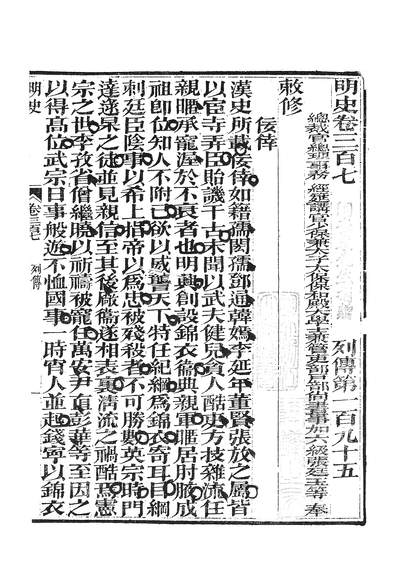 明史卷三百七　列傳第一百九十五
總裁官總理事務經筵講官少保兼太子太保保和殿大學士兼管吏部戶部尚書事加六級張廷玉等奉
敕修
佞倖
漢史所載佞倖如籍孺閎孺鄧通韓嫣李延年董賢張放之屬皆
以宦寺弄臣貽譏千古未聞以武夫健兒貪人酷吏方技雜流任
親暱承寵渥於不衰者也明興創設錦衣衞典親軍暱居肘腋成
祖卽位知人不附己欲以威讋天下特任紀綱爲錦衣寄耳目綱
刺廷臣陰事以希上指帝以爲忠被殘殺者不可勝數英宗時門
達逯杲之徒並見親信至其後廠衞遂相表裏淸流之禍酷焉憲
宗之世李孜省僧繼曉以祈禱被寵任萬安尹直彭華等至因之
以得高位武宗日事般遊不恤國事一時宵人並起錢寧以錦衣
明史
卷三百七　列傳